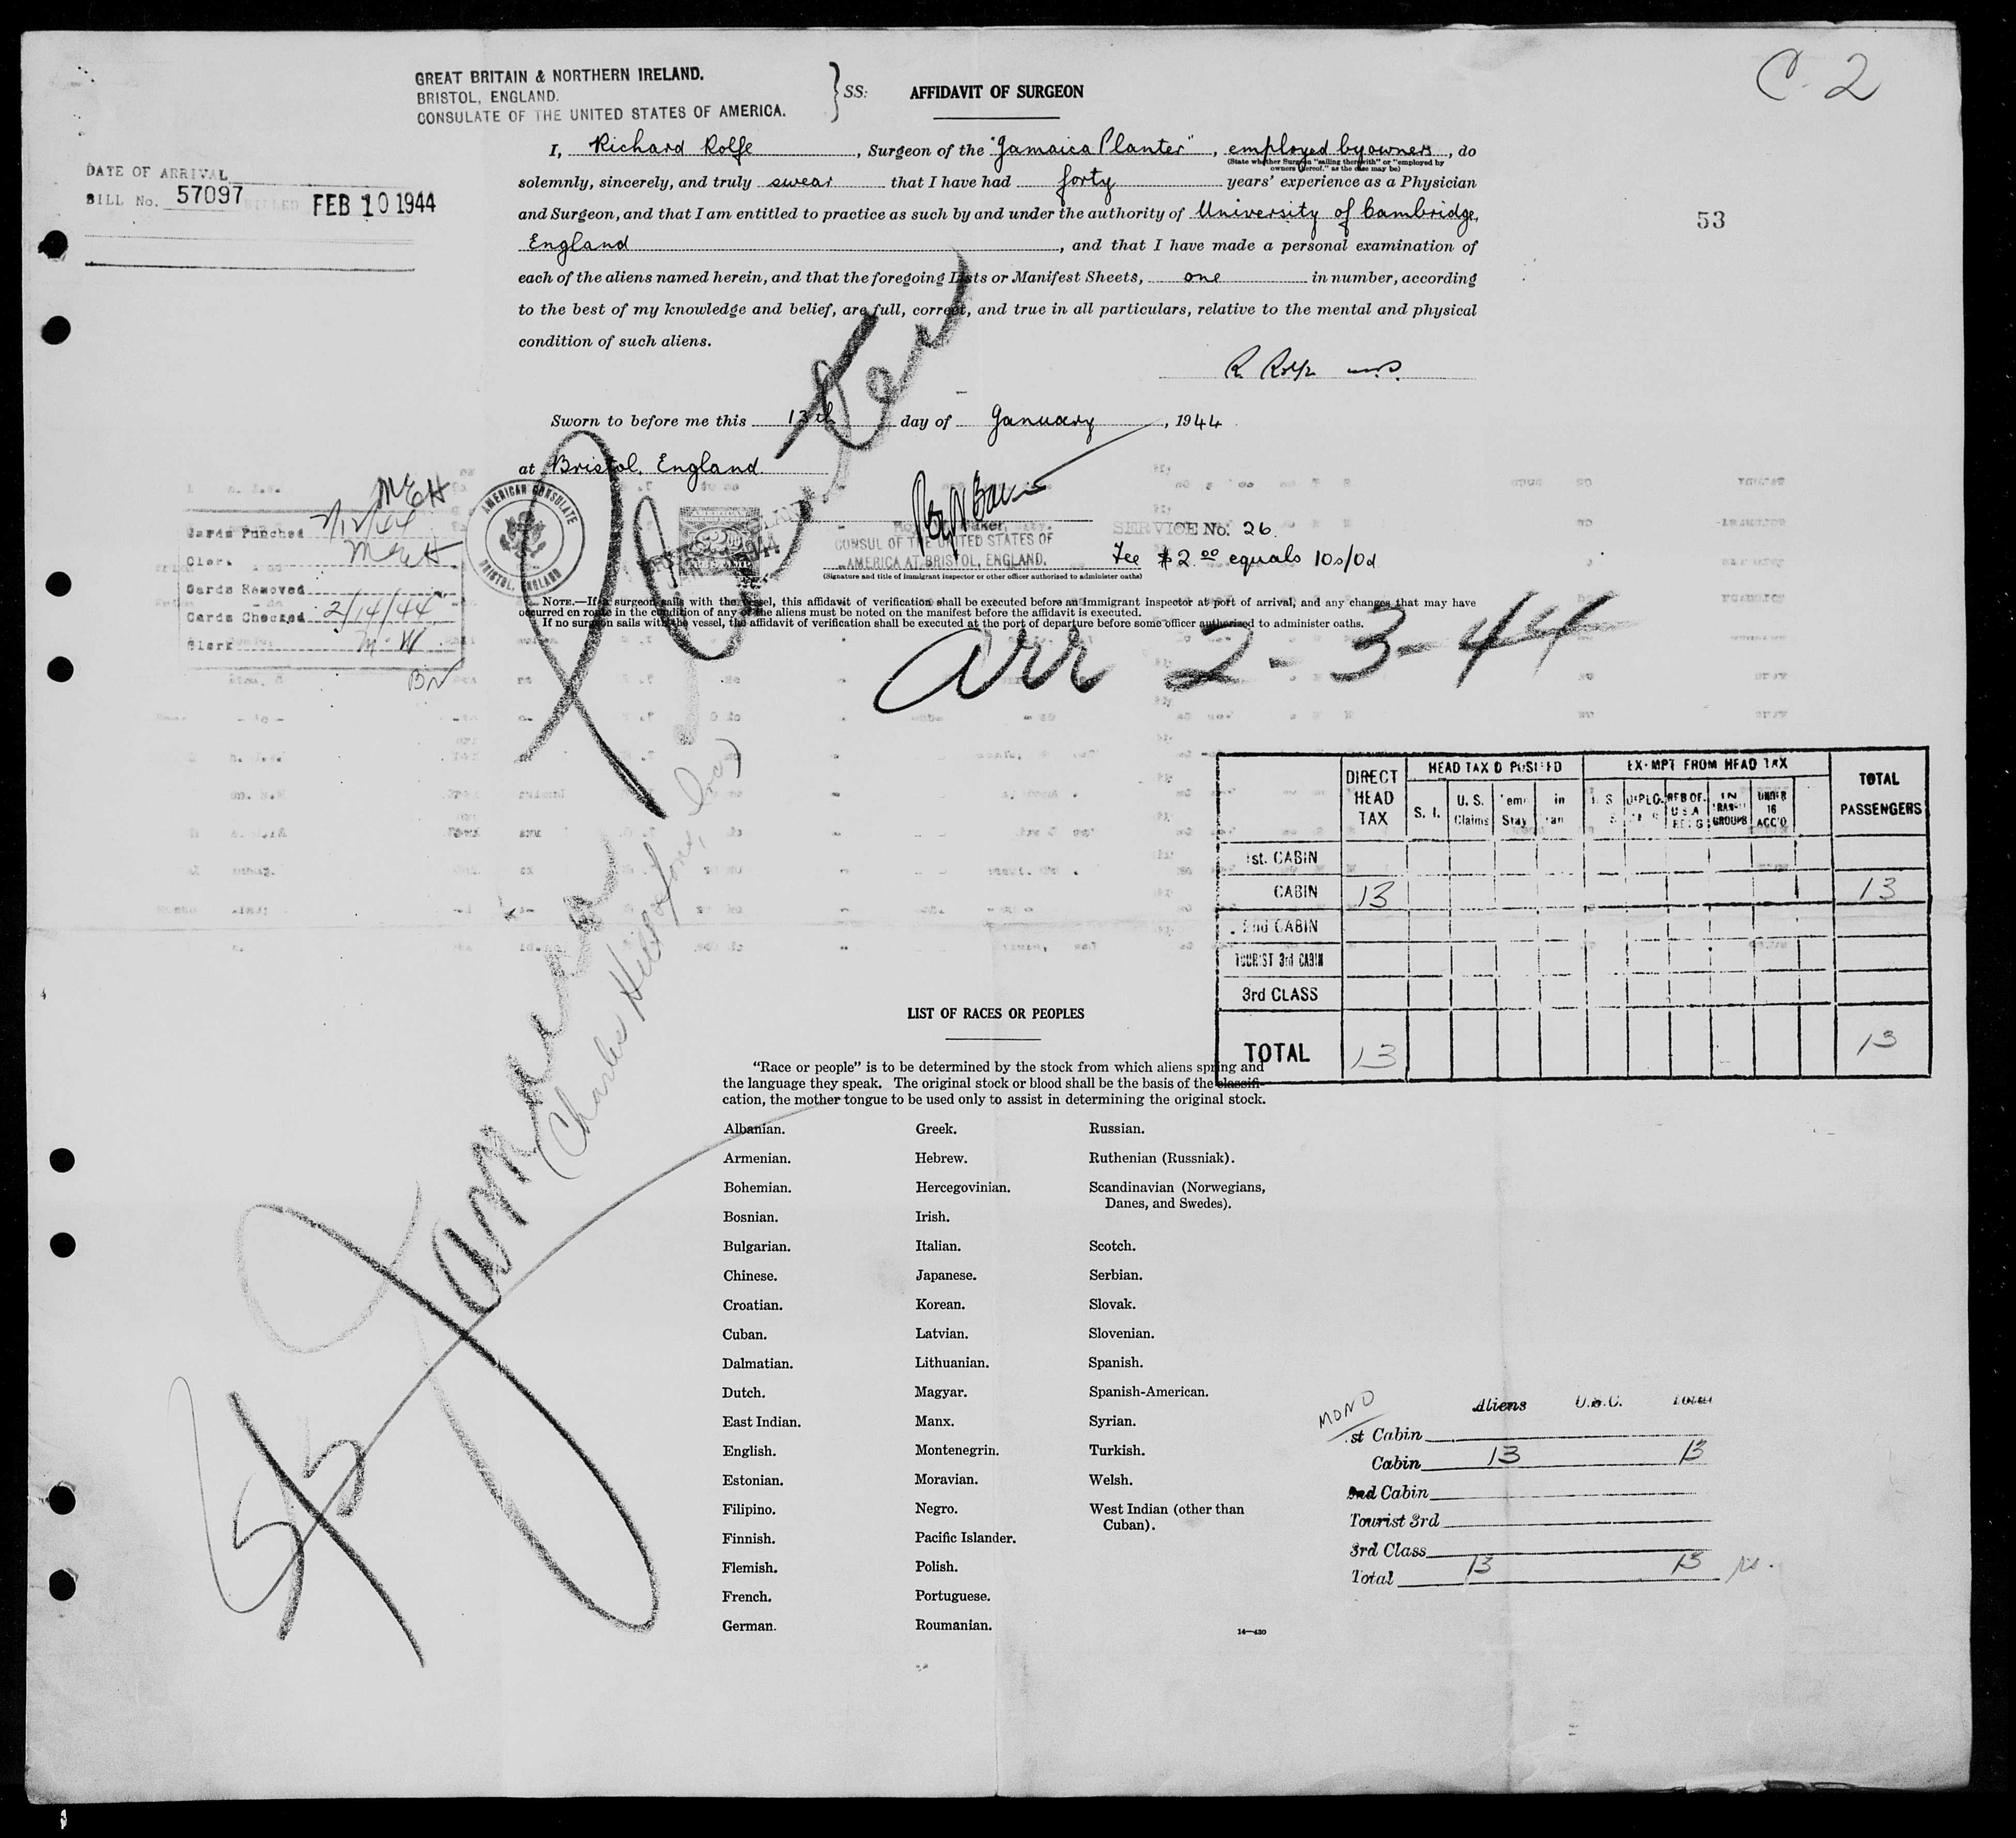 C-2
GREAT BRITAIN & NORTHERN IRELAND.
BRISTOL, ENGLAND.
CONSULATE OF THE UNITED STATES OF AMERICA.
SS:
AFFIDAVIT OF SURGEON
DATE OF ARRIVAL
BILL No. 57097 BILLED FEB 10 1944
53
I, Richard Rolfe, Surgeon of the "Jamaica Planter", employed by owners, do
(State whether Surgeon "sailing therewith" or "employed by
owners thereof," as the case may be)
solemnly, sincerely, and truly swear that I have had forty years' experience as a Physician
and Surgeon, and that I am entitled to practice as such by and under the authority of University of Cambridge,
England, and that I have made a personal examination of
each of the aliens named herein, and that the foregoing Lists or Manifest Sheets, one in number, according
to the best of my knowledge and belief, are full, correct, and true in all particulars, relative to the mental and physical
condition of such aliens.
R Rolfe M.D.
Sworn to before me this 13th day of January, 1944
at Bristol, England
AMERICAN CONSULATE
BRISTOL, ENGLAND
AMERICAN
Baker
CONSUL OF THE UNITED STATES OF
AMERICA AT BRISTOL, ENGLAND.
(Signature and title of immigrant inspector or other officer authorized to administer oaths)
SERVICE No. 26.
Fee $2.00 equals 10s/0d
MEH
Cards Punched 2/12/44
Clerk MEH
Cards Removed
Cards Checked 2/14/44
Clerk M.W
BN
NOTE.—If a surgeon sails with the vessel, this affidavit of verification shall be executed before an immigrant inspector at port of arrival, and any changes that may have
occurred en route in the condition of any of the aliens must be noted on the manifest before the affidavit is executed.
If no surgeon sails with the vessel, the affidavit of verification shall be executed at the port of departure before some officer authorized to administer oaths.
arr 2-3-44
S/S Jamaica Planter
DIRECT HEAD TAX
HEAD TAX DEPOSITED
EXEMPT FROM HEAD TAX
TOTAL PASSENGERS
S. I.
U. S. Claims
Temp Stay
In Tran
IN TRANSIT GROUPS
UNDER 16 ACC'D
1st. CABIN
CABIN 13 13
2nd CABIN
TOURIST 3rd CABIN
3rd CLASS
TOTAL 13 13
LIST OF RACES OR PEOPLES
"Race or people" is to be determined by the stock from which aliens spring and
the language they speak. The original stock or blood shall be the basis of the classifi-
cation, the mother tongue to be used only to assist in determining the original stock.
Albanian.
Armenian.
Bohemian.
Bosnian.
Bulgarian.
Chinese.
Croatian.
Cuban.
Dalmatian.
Dutch.
East Indian.
English.
Estonian.
Filipino.
Finnish.
Flemish.
French.
German.
Greek.
Hebrew.
Hercegovinian.
Irish.
Italian.
Japanese.
Korean.
Latvian.
Lithuanian.
Magyar.
Manx.
Montenegrin.
Moravian.
Negro.
Pacific Islander.
Polish.
Portuguese.
Roumanian.
Russian.
Ruthenian (Russniak).
Scandinavian (Norwegians,
Danes, and Swedes).
Scotch.
Serbian.
Slovak.
Slovenian.
Spanish.
Spanish-American.
Syrian.
Turkish.
Welsh.
West Indian (other than
Cuban).
14—430
MONO
Aliens U.S.C. Total
1st Cabin
Cabin 13 13
2nd Cabin
Tourist 3rd
3rd Class
Total 13 13